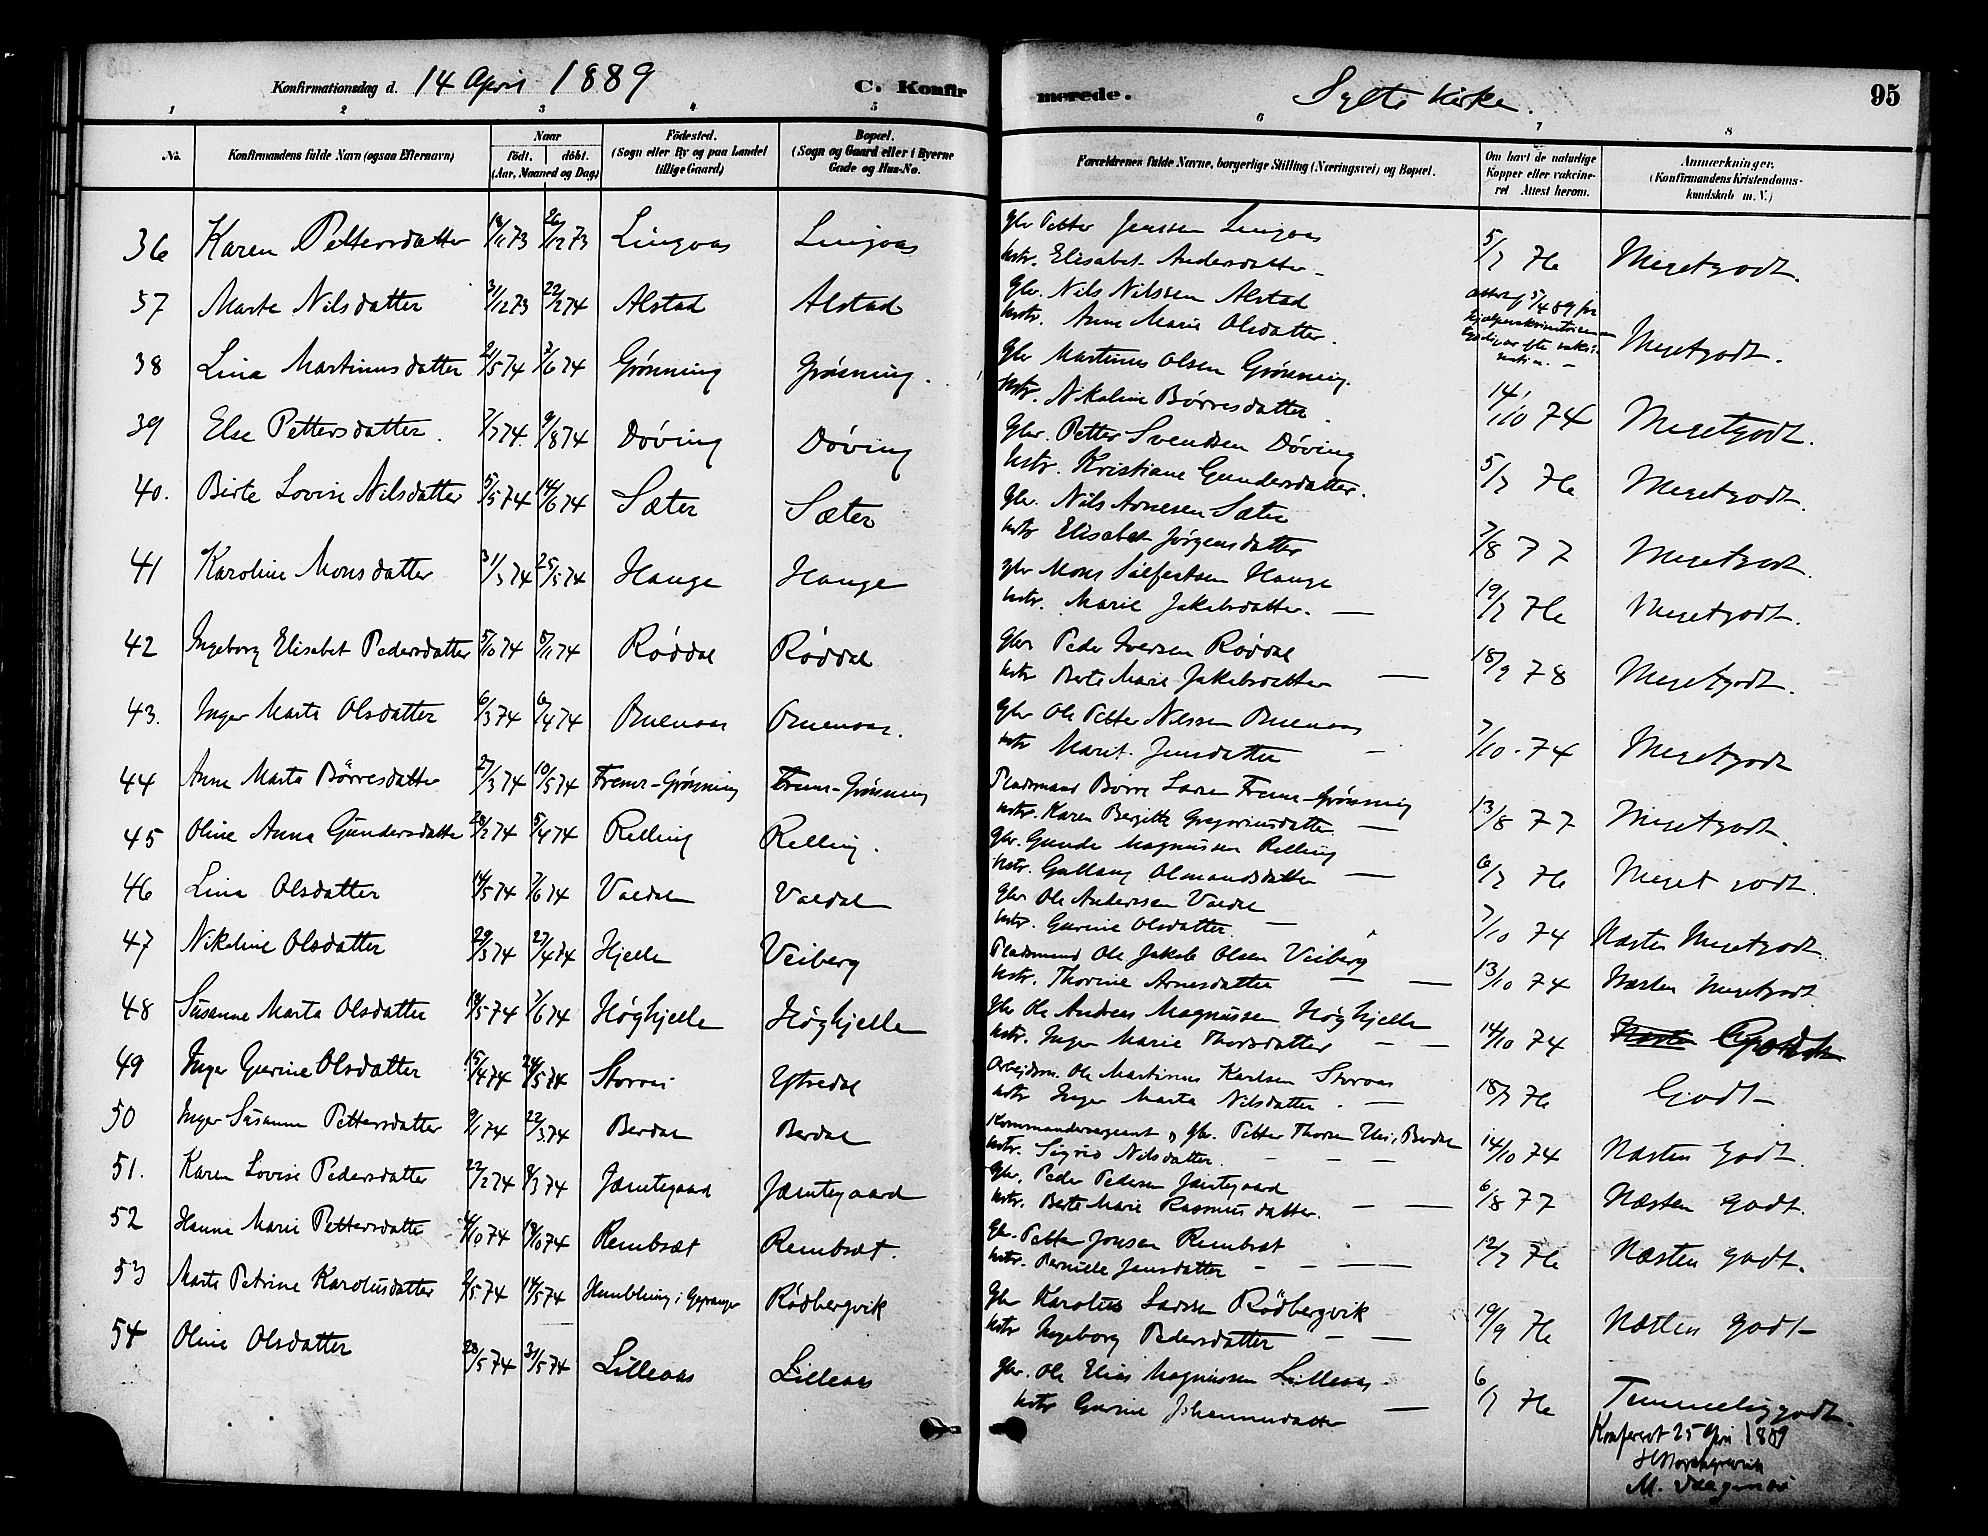 Konfirmationsdag d. 14 April 1889 C. Konfirmerede. Sylte Kirke. 95
1 2 3 4 5 6 7 8
No. Konfirmandens fulde Navn (ogsaa Efternavn) Naar født. døbt. (Aar, Maaned og Dag) Fødested. (Sogn eller By og paa Landet tillige Gaard) Bopæl. (Sogn og Gaard eller i Byerne Gade og Hus-No. Forældrenes fulde Navne, borgerlige Stilling (Næringsvei) og Bopæl. Om havt de naturlige Kopper eller vaccineret Attest herom. Anmærkninger. (Konfirmandens Kristendomskundskab m. V.)
36 Karen Pettersdatter 18/11 73 26/12 73 Lingaas Lingaas Gbr Petter Jenssen Lingaas 5/7 76 Megetgodt.
Hstr. Elisabet Andersdatter
37 Marte Nilsdatter 31/12 73 22/2 74 Alstad Alstad Gbr. Nils Nilssen Alstad Megetgodt.
Hstr. Anne Marie Olsdatter.
38 Lina Martinusdatter 21/5 74 7/6 74 Grønning Grønning. Gbr Martinus Olsen Grønning. 14/10 74 Megetgodt.
Hstr. Nikoline Børresdatter
39 Else Pettersdatter. 7/7 74 9/8 74 Døving Døving Gbr. Petter Svendsen Døving 5/7 76 Megetgodt.
Hstr. Kristiane Gundersdatter.
40. Birte Lovise Nilsdatter 5/5 74 14/6 74 Sæter Sæter Gbr. Nils Arnesen Sæter 7/8 77 Megetgodt.
Hstr Elisabet Jørgensdatter
41 Karoline Monsdatter 31/3 74 25/5 74 Hauge Hauge Gbr Mons Hauge 19/7 76 Megetgodt.
Hstr. Marie Jakobsdatter.
42 Ingeborg Elisabet Pedersdatter 5/10 74 8/11 74 Røddal Røddal Gbr Peder Iversen Røddal 18/9 78 Megetgodt.
Hstr Berte Marie Jakobsdatter
43. Inger Marta Olsdatter 6/3 74 6/4 74 Ouenaas Ouenaas. Gbr Ole Petter Nilssen Ouenaas 7/10 74 Megetgodt
Hstr Marit Jensdatter
44 Anne Marta Børresdatter 27/3 74 10/5 74 Fremr-Grønning Fremr-Grønning Pladsmand Børre Larsen Fremr-Grønning 13/8 77 Megetgodt.
Hstr. Karen Bergitte Gregoriusdatter
45 Oline Anna Gundersdatter 28/2 74 5/4 74 Relling Relling. Gbr. Gunder Magnussen Relling 6/7 76 Meget godt.
Hstr. Olmandsdatter
46 Lina Olsdatter 14/5 74 7/6 74 Valdal Valdal Gbr Ole Anderssen Valdal 7/10 74 Næsten Megetgodt
Hstr. Gurine Olsdatter.
47 Nikoline Olsdatter 29/3 74 27/4 74 Hjelle Veiberg Pladsmand Ole Jakob Olsen Veiberg 13/10 74 Næsten Megetgodt
Hstr. Thorine Arnesdatter
48 Susanne Marta Olsdatter 18/5 74 7/6 74 Høghjelle Høghjelle Gbr Ole Andreas Magnussen Høghjelle 14/10 74 Godt
Hstr. Inger Marie Thorsdatter
49 Inger Gurine Olsdatter 15/4 74 24/5 74 Storaas Ytredal Arbejdsm. Ole Martinus Karlsen Storaas 18/7 76 Godt
Hstr Inger Marta Nilsdatter.
50 Inger Susanne Pettersdatter 9/1 74 22/3 74 Berdal Berdal Kommandersergeant og Gbr. Petter Thorsen Uri, Berdal 14/10 74 Næsten Godt.
Hstr. Sigrid Nilsdatter.
51. Karen Lovise Pedersdatter 22/2 74 8/3 74 Jamtegaard Jamtegaard Gbr. Peder Pedersen Jamtegaard 6/8 77 Næsten godt.
Hstr. Berte Marie Rasmusdatter.
52 Hanna Marie Pettersdatter 4/10 74 18/10 74 Rembsæt Rembsæt. Gbr. Petter Jonsen Rembsæt 12/7 76 Næsten godt.
Hstr. Pernille Jensdatter
53 Marte Petrine Karolusdatter 2/5 74 14/5 74 Humblung i Geiranger Rødbergvik Gbr Karolus Larsen Rødbergvik 19/9 76 Næsten godt
Hstr Ingeborg Pedersdatter
54 Oline Olsdatter 28/5 74 31/5 74 Lilleaas Lilleaas Gbr. Ole Elias Magnussen Lilleaas 6/7 76 Temmeliggodt.
Hstr Gurine Johannesdatter
Konfereret 25 1889